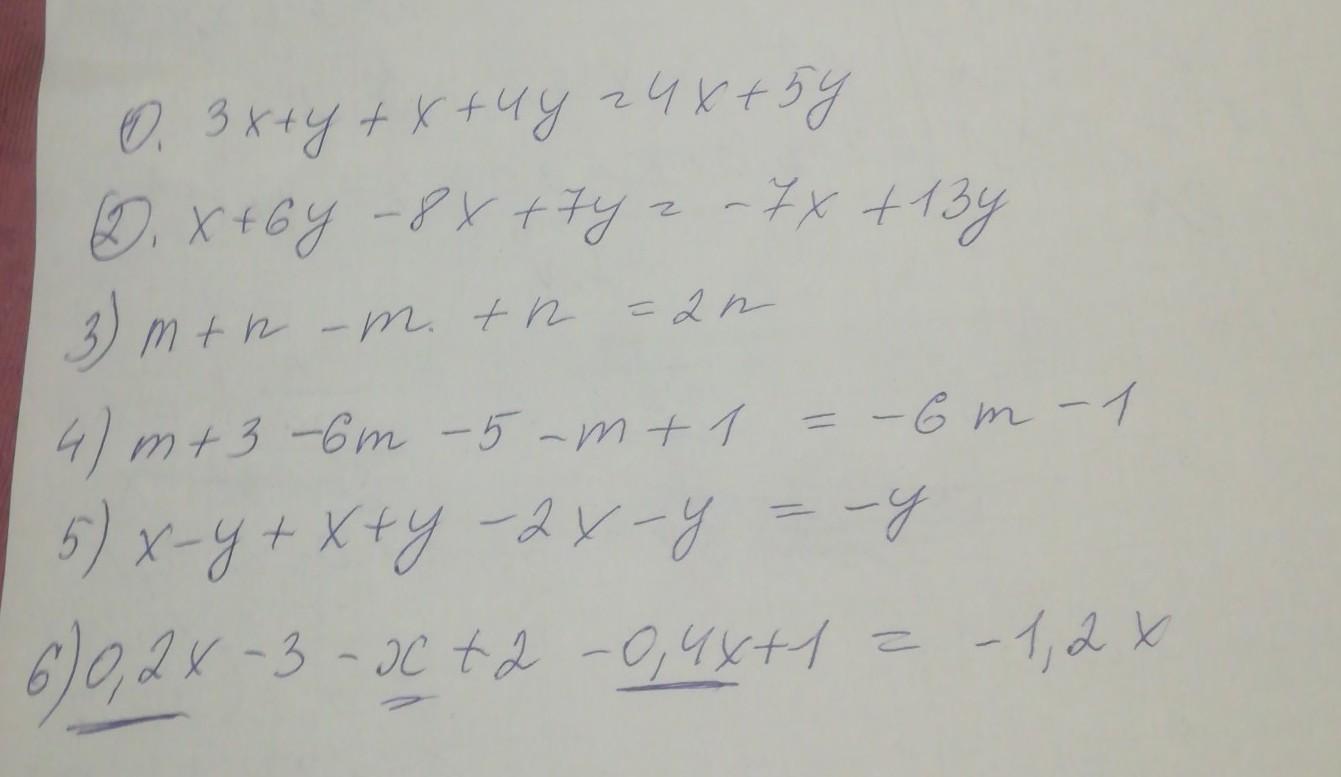 1). 3x+y+x+4y=4x+5y
2). x+6y-8x+7y=-7x+13y
3) m+n-m.+n=2n
4) m+3-6m-5-m+1=-6m-1
5) x-y+x+y-2x-y=-y
6) 0,2x-3-x+2-0,4x+1=-1,2x